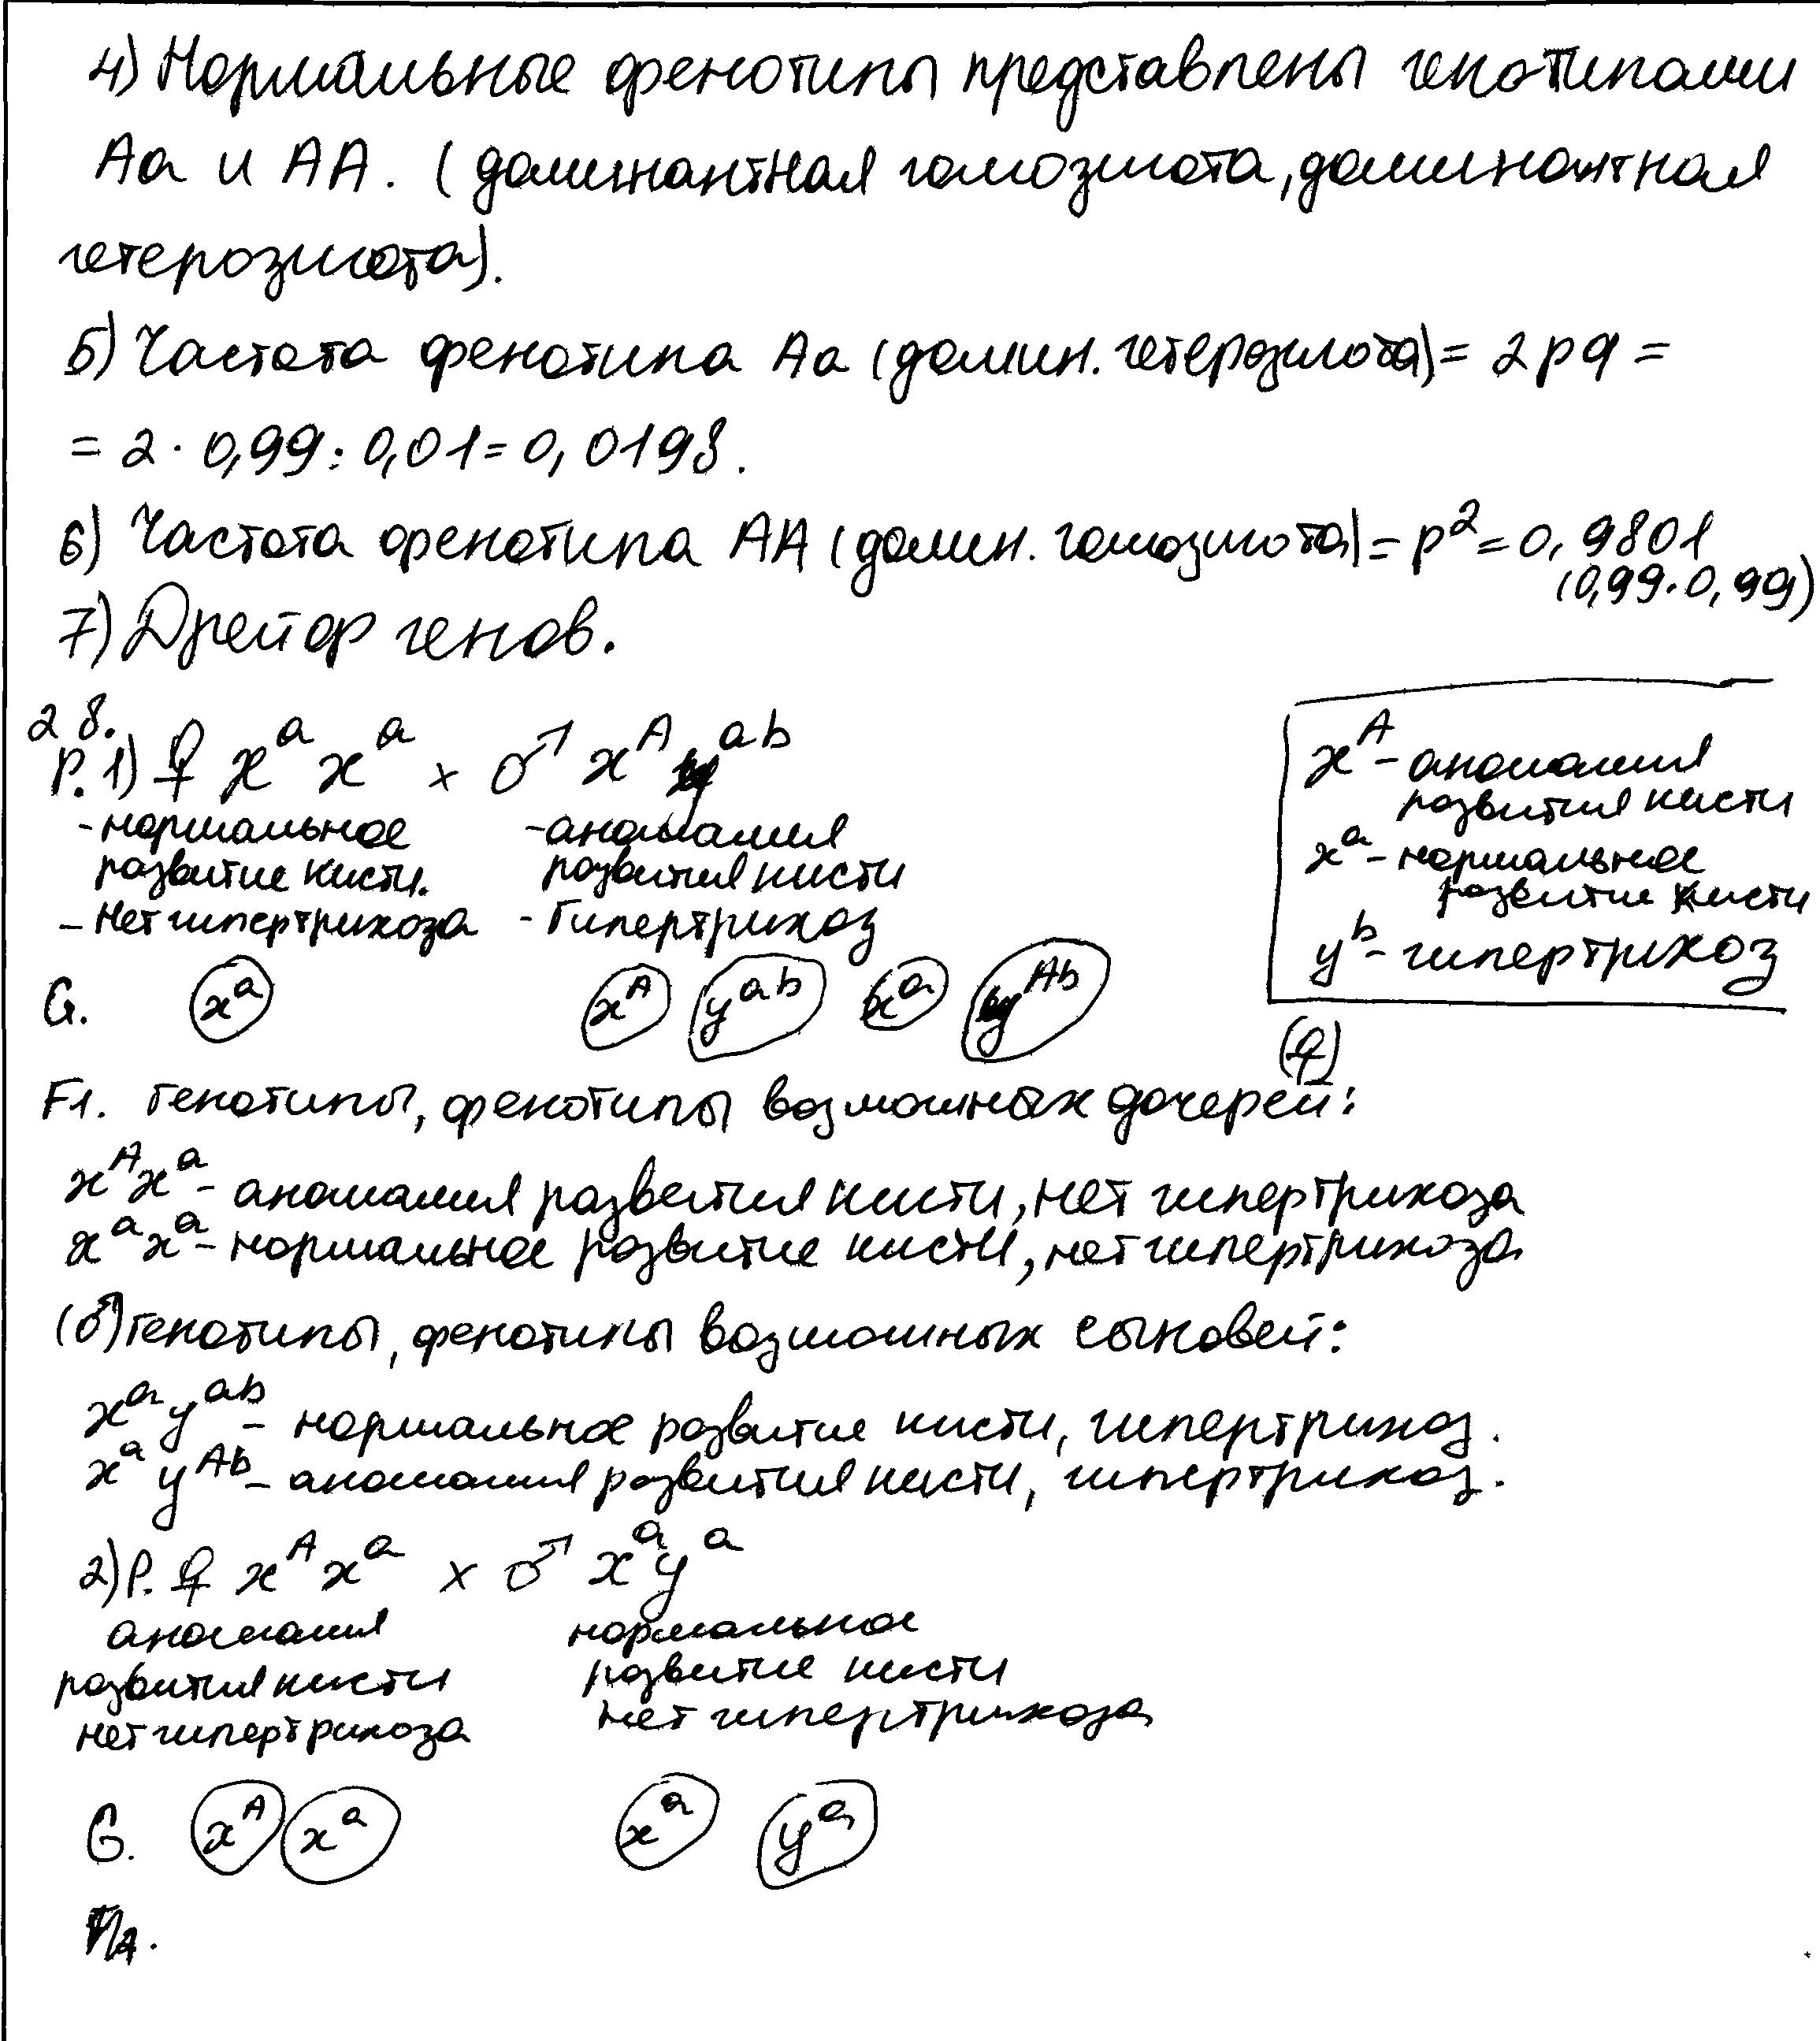 4) Нормальные фенотипы представлены генотипами
Аа и АА. (доминантная гомозигота, доминантная
гетерозигота).
5) Частота фенотипа Аа (домин. гетерозигота) = 2pq =
= 2 · 0,99 · 0,01 = 0,0198.
6) Частота фенотипа АА (домин. гомозигота) = p² = 0,9801
(0,99·0,99)
7) Дрейф генов.
28.
P. 1) ♀ xᵃxᵃ × ♂ xᴬyᵃᵇ
- нормальное - аномалия
развитие кисти. развития кисти
- Нет гипертрихоза - Гипертрихоз
xᴬ - аномалия
развития кисти
xᵃ - нормальное
развитие кисти
yᵇ - гипертрихоз
G. xᵃ xᴬ yᵃᵇ xᵃ yᴬᵇ
(♀)
F1. Генотипы, фенотипы возможных дочерей:
xᴬxᵃ - аномалия развития кисти, нет гипертрихоза
xᵃxᵃ - нормальное развитие кисти, нет гипертрихоза
(♂) Генотипы, фенотипы возможных сыновей:
xᵃyᵃᵇ - нормальное развитие кисти, гипертрихоз.
xᵃyᴬᵇ - аномалия развития кисти, гипертрихоз.
2) P. ♀ xᴬxᵃ × ♂ xᵃyᵃ
аномалия нормальное
развития кисти развитие кисти
нет гипертрихоза нет гипертрихоза
G. xᴬ xᵃ xᵃ yᵃ